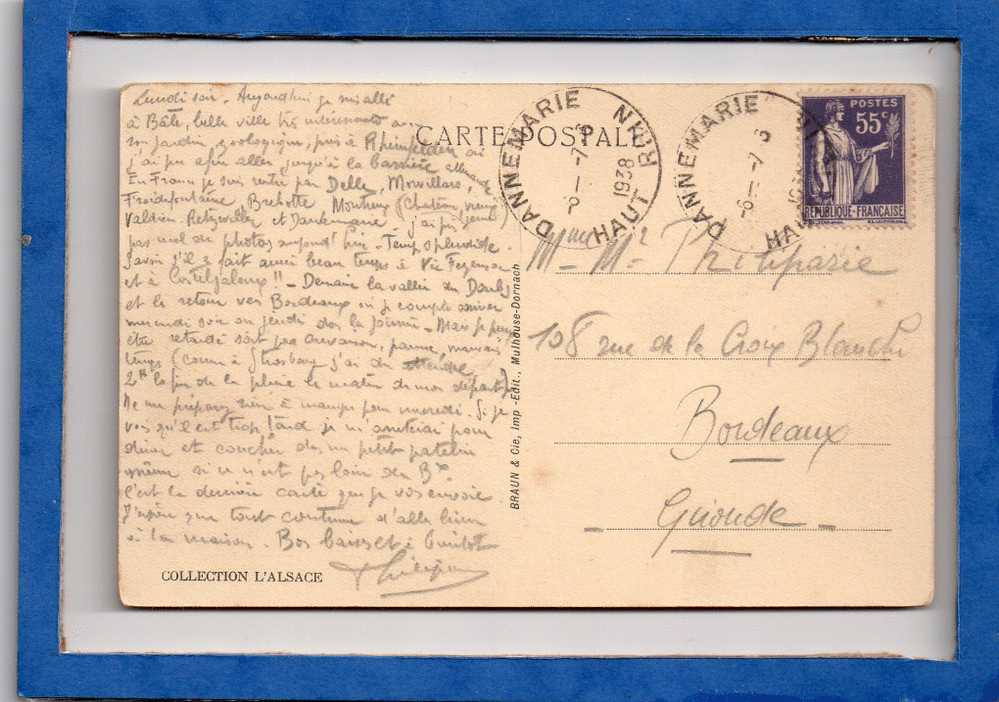 CARTE POSTALE
DANNEMARIE
HAUT RHIN
1938
DANNEMARIE
HAUT
POSTES
55c
REPUBLIQUE-FRANCAISE
Lundi soir - Aujourd'hui je suis allé
à Bâle, belle ville très intéressante
son jardin zoologique, puis à Rheinfelden où
j'ai pu aller jusqu'à la barrière allemande
En France je suis rentré par Delle, Morvillars,
Froidefontaine, Brebotte Montreux (Château, vieux)
Valdieu Retzwiller et Dannemarie
pas mal de photos aujourd'hui - Temps splendide
Savoir s'il a fait aussi beau temps à Vic Fezensac
et à Casteljaloux !! - Demain la vallée du Doubs
et le retour vers Bordeaux où je compte arriver
mercredi soir ou jeudi dans la journée - Mais je peux
être retardé soit par crevaison, panne, mauvais
temps (comme à Strasbourg j'ai dû attendre
2H la fin de la pluie le matin de mon départ)
Ne me préparez rien à manger pour mercredi. Si je
vois qu'il est trop tard je m'arrêterai pour
dîner et coucher dans un petit patelin
même si ce n'est pas loin de Bx
C'est la dernière carte que je vous envoie
J'espère que tout continue d'aller bien
à la maison. Bons baisers à
COLLECTION L'ALSACE
BRAUN & Cie, Imp -Edit., Mulhouse-Dornach
Mme Mr Philiparie
108 rue de la Croix Blanche
Bordeaux
- Gironde -